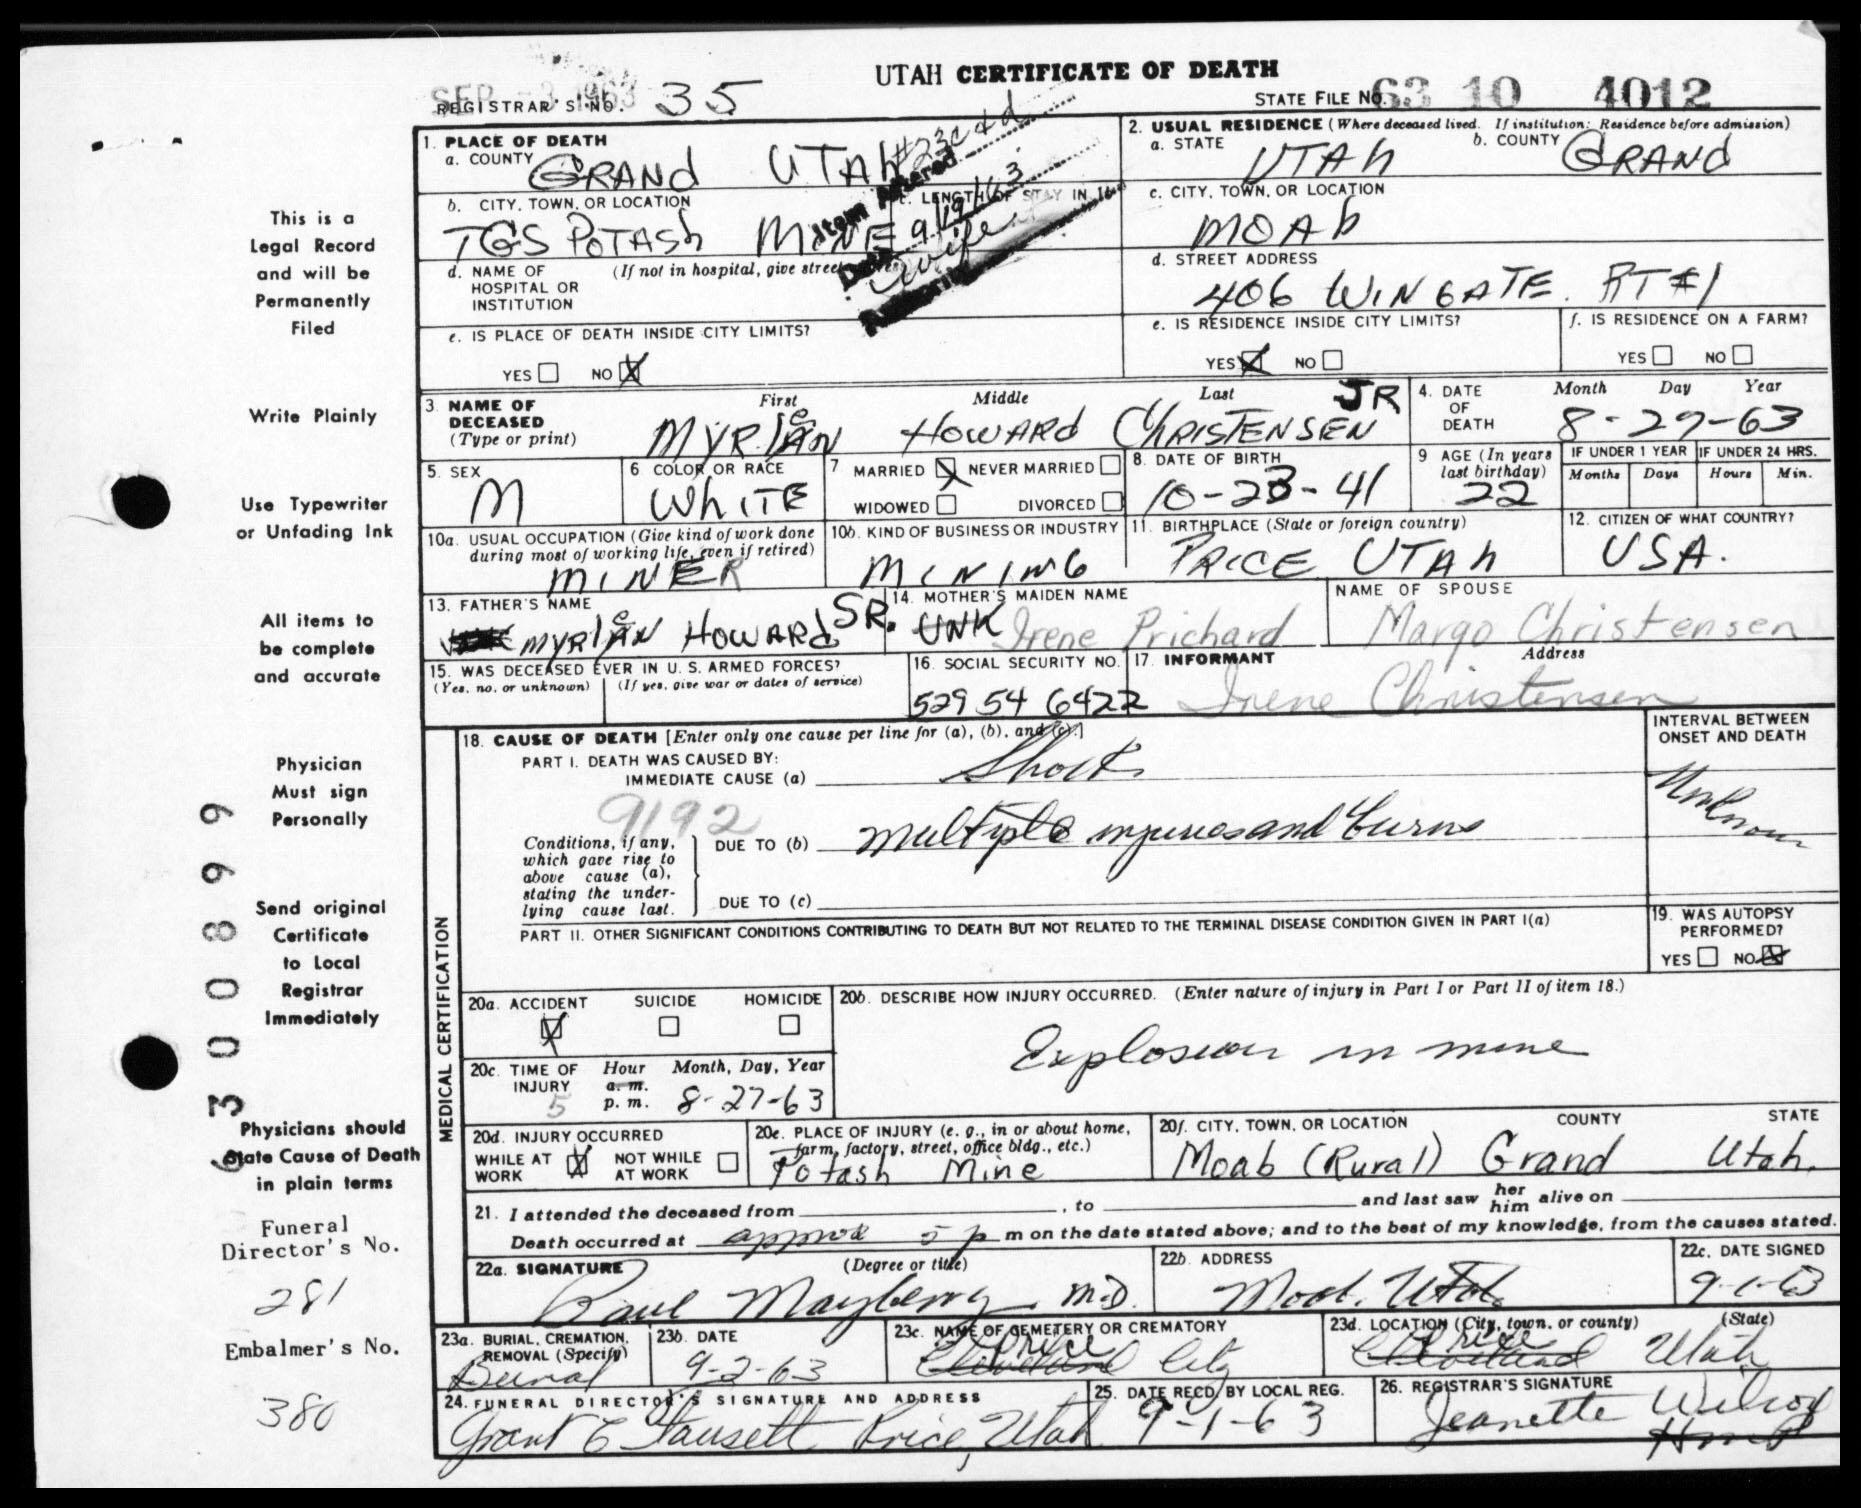 UTAH CERTIFICATE OF DEATH
SEP -3 1963
REGISTRAR'S NO. 35
STATE FILE NO. 63 10 4012
1. PLACE OF DEATH
a. COUNTY GRAND UTAH
b. CITY, TOWN, OR LOCATION
TGS POTASH MINE
c. LENGTH OF STAY IN 1b
#23c & d
Item Altered
9/19/63
Date
Wife
d. NAME OF HOSPITAL OR INSTITUTION (If not in hospital, give street address)
e. IS PLACE OF DEATH INSIDE CITY LIMITS?
YES NO X
2. USUAL RESIDENCE (Where deceased lived. If institution: Residence before admission)
a. STATE UTAH b. COUNTY GRAND
c. CITY, TOWN, OR LOCATION
MOAB
d. STREET ADDRESS
406 WINGATE RT #1
e. IS RESIDENCE INSIDE CITY LIMITS?
YES X NO
f. IS RESIDENCE ON A FARM?
YES NO
3. NAME OF DECEASED (Type or print)
First Middle Last
MYRLEN HOWARD CHRISTENSEN JR
4. DATE OF DEATH Month Day Year
8-27-63
5. SEX
M
6 COLOR OR RACE
WHITE
7 MARRIED X NEVER MARRIED
WIDOWED DIVORCED
8. DATE OF BIRTH
10-23-41
9 AGE (In years last birthday)
22
IF UNDER 1 YEAR
Months Days
IF UNDER 24 HRS.
Hours Min.
10a. USUAL OCCUPATION (Give kind of work done during most of working life, even if retired)
MINER
10b. KIND OF BUSINESS OR INDUSTRY
MINING
11. BIRTHPLACE (State or foreign country)
PRICE UTAH
12. CITIZEN OF WHAT COUNTRY?
USA.
13. FATHER'S NAME
MYRLEN HOWARD SR.
14. MOTHER'S MAIDEN NAME
UNK Irene Prichard
NAME OF SPOUSE
Margo Christensen
15. WAS DECEASED EVER IN U. S. ARMED FORCES?
(Yes, no, or unknown) (If yes, give war or dates of service)
16. SOCIAL SECURITY NO.
529 54 6422
17. INFORMANT Address
Irene Christensen
MEDICAL CERTIFICATION
18. CAUSE OF DEATH [Enter only one cause per line for (a), (b), and (c).]
PART I. DEATH WAS CAUSED BY:
IMMEDIATE CAUSE (a) Shock
9192
Conditions, if any, which gave rise to above cause (a), stating the underlying cause last.
DUE TO (b) multiple injuries and burns
DUE TO (c)
INTERVAL BETWEEN ONSET AND DEATH
Unknown
PART II. OTHER SIGNIFICANT CONDITIONS CONTRIBUTING TO DEATH BUT NOT RELATED TO THE TERMINAL DISEASE CONDITION GIVEN IN PART I(a)
19. WAS AUTOPSY PERFORMED?
YES NO X
20a. ACCIDENT SUICIDE HOMICIDE
X
20b. DESCRIBE HOW INJURY OCCURRED. (Enter nature of injury in Part I or Part II of item 18.)
Explosion in mine
20c. TIME OF INJURY Hour Month, Day, Year
5 a.m. p.m. 8-27-63
20d. INJURY OCCURRED
WHILE AT WORK X NOT WHILE AT WORK
20e. PLACE OF INJURY (e. g., in or about home, farm, factory, street, office bldg., etc.)
Potash Mine
20f. CITY, TOWN, OR LOCATION COUNTY STATE
Moab (Rural) Grand Utah.
21. I attended the deceased from , to and last saw her him alive on
Death occurred at approx 5 p m on the date stated above; and to the best of my knowledge, from the causes stated.
22a. SIGNATURE (Degree or title)
Paul Mayberry M.D.
22b. ADDRESS
Moab, Utah
22c. DATE SIGNED
9-1-63
23a. BURIAL, CREMATION, REMOVAL (Specify)
Burial
23b. DATE
9-2-63
23c. NAME OF CEMETERY OR CREMATORY
Price
Cleveland City
23d. LOCATION (City, town, or county) (State)
Price
Cleveland Utah
24. FUNERAL DIRECTOR'S SIGNATURE AND ADDRESS
Grant C Fausett Price, Utah
25. DATE RECD. BY LOCAL REG.
9-1-63
26. REGISTRAR'S SIGNATURE
Jeanette Wilcox
This is a
Legal Record
and will be
Permanently
Filed
Write Plainly
Use Typewriter
or Unfading Ink
All items to
be complete
and accurate
Physician
Must sign
Personally
Send original
Certificate
to Local
Registrar
Immediately
Physicians should
State Cause of Death
in plain terms
Funeral
Director's No.
281
Embalmer's No.
380
6300899